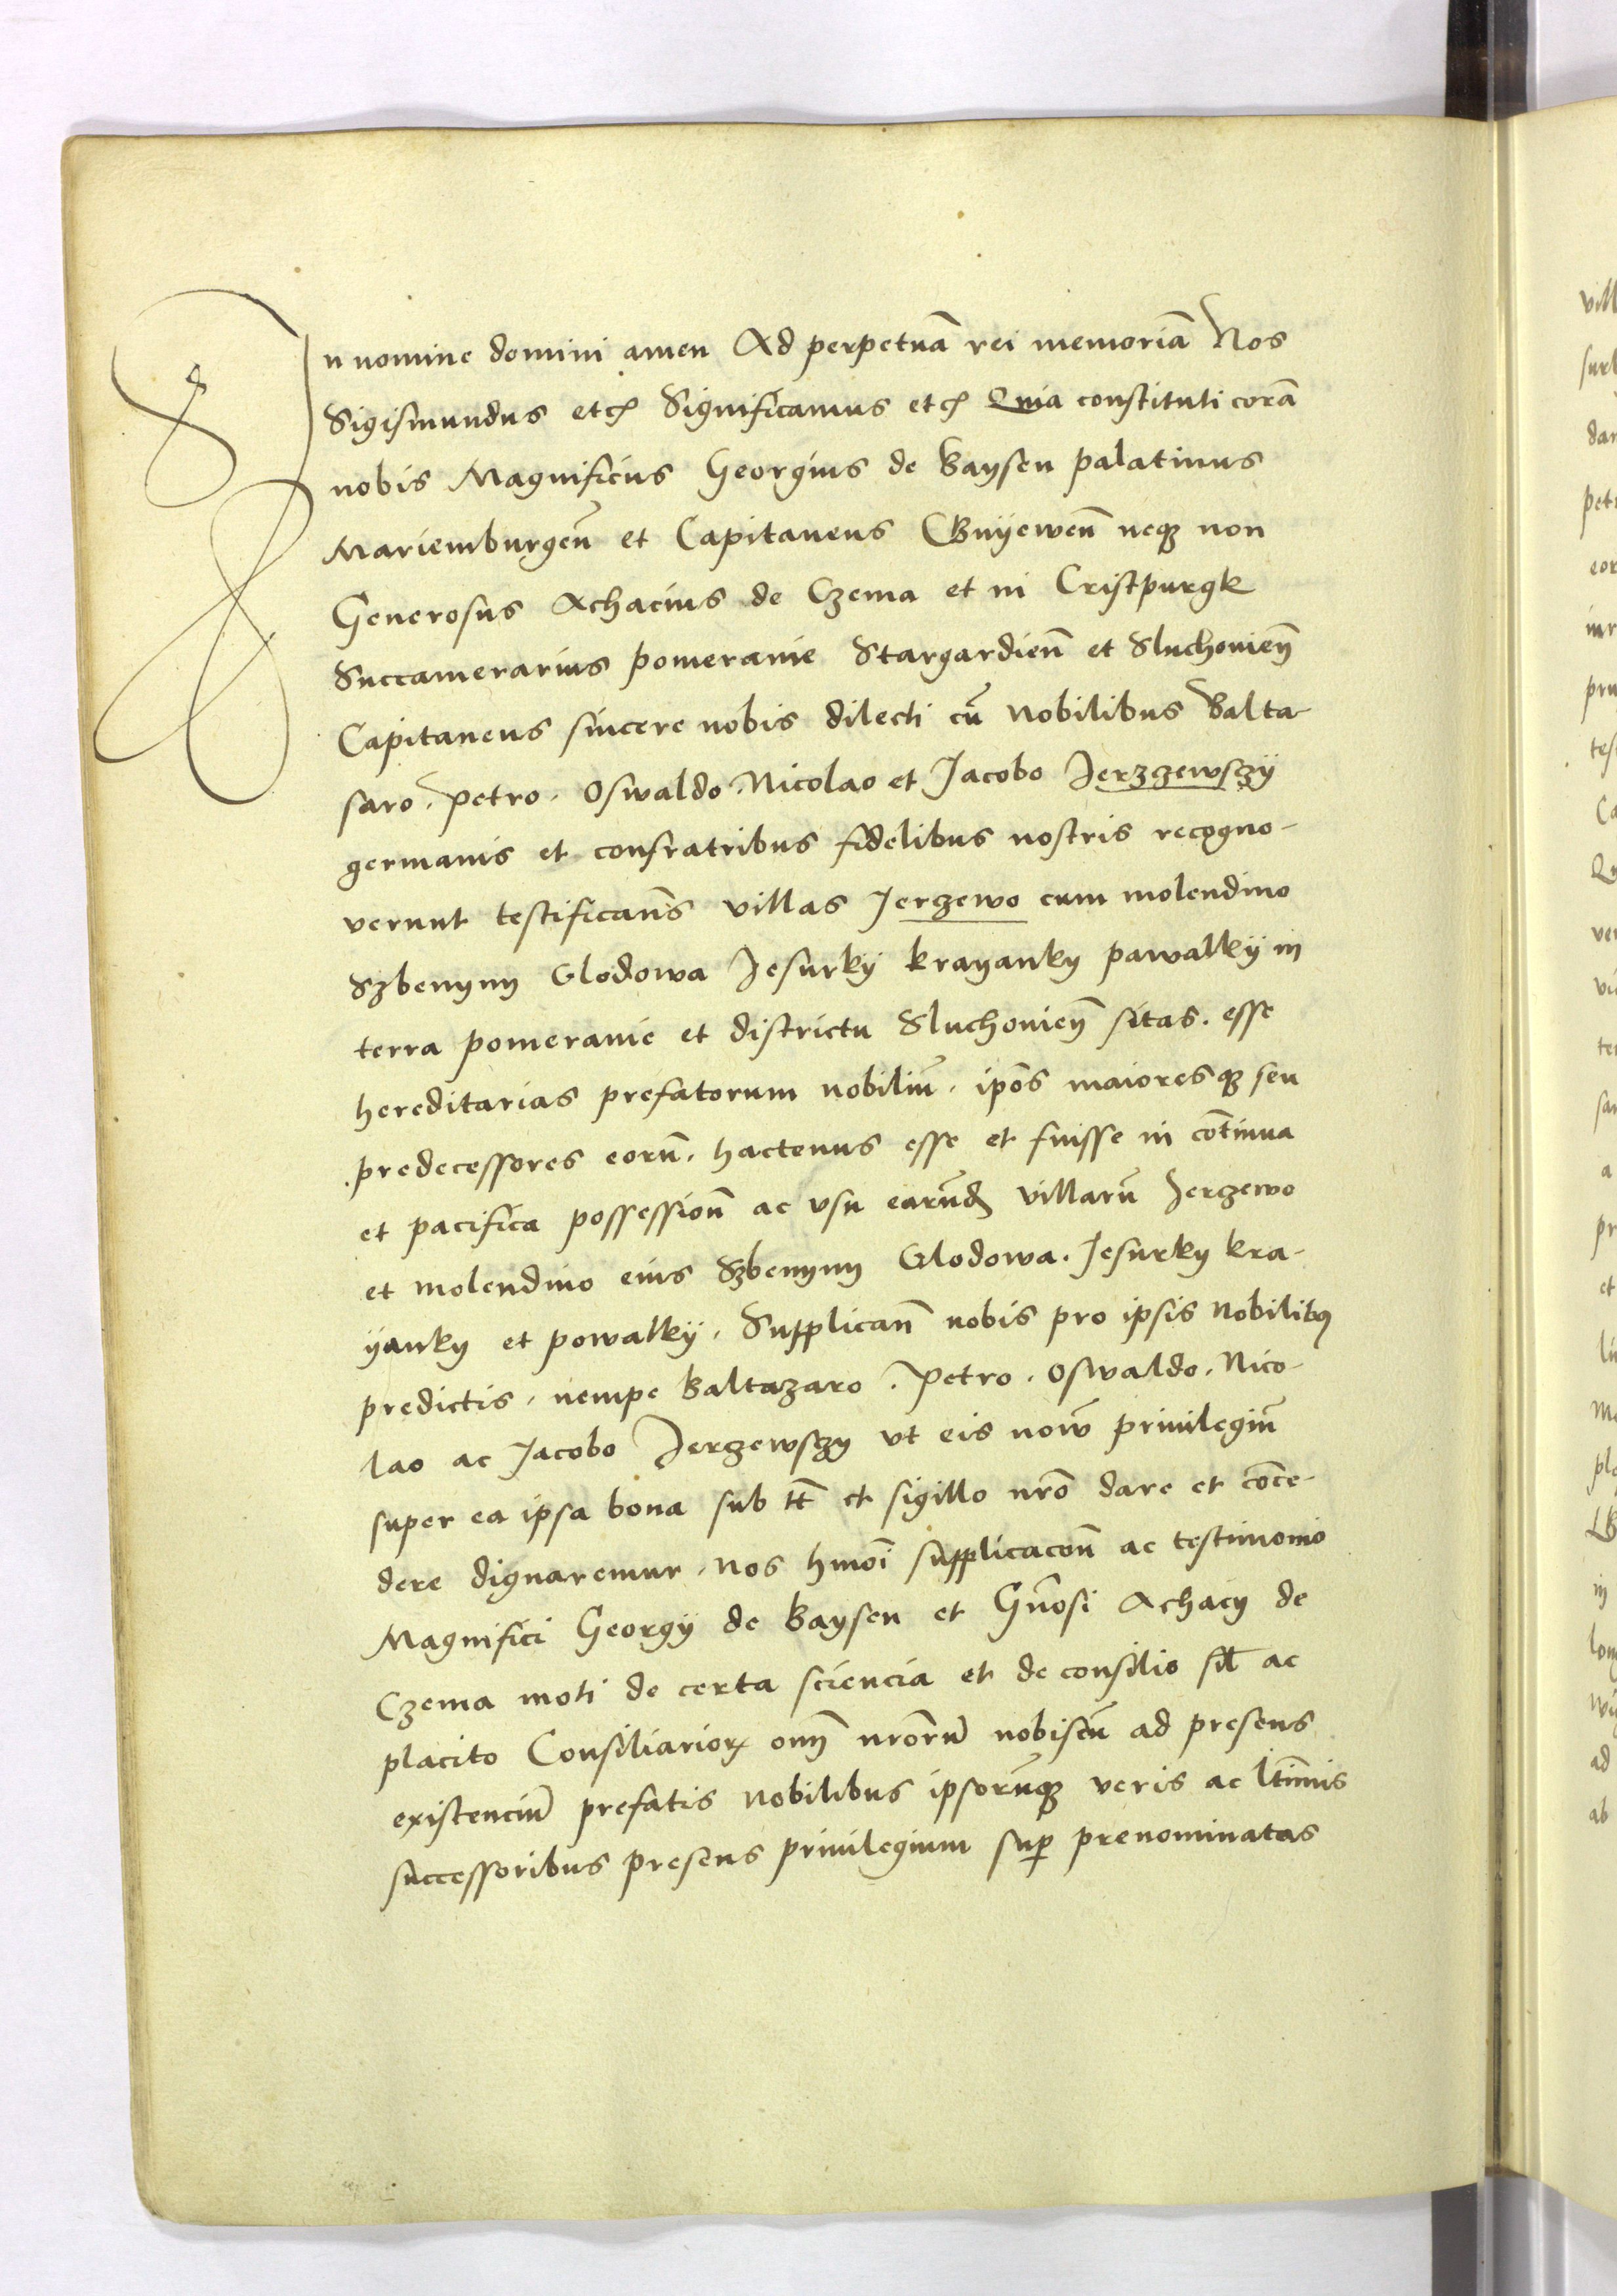 In nomine domini amen Ad perpetuā rei memoriā Nos
Sigismundus etcꝭ Significamus etcꝭ Quia constituti corā
nobis Magnificus Georgius de Baysen palatinus
Mariemburgeñ et Capitaneus Gnyeweñ neqꝫ non
Generosus Achacius de Czema et in Cristpurgk
Succamerarius pomeranie Stargardieñ et Sluchovieñ
Capitaneus sincere nobis dilecti cū Nobilibus Balta-
saro. Petro. Oswaldo. Nicolao et Jacobo Jerzzewsczÿ
germanis et confratribus fidelibus nostris recogno-
verunt testificañs villas Jerczewo cum molendino
Szbenyny Glodowa Jesurkÿ krayanky pawalkÿ in
terra pomeranie et districtu Sluchovieñ sitas. esse
hereditarias prefatorum nobiliū. ipōs maioresqꝫ seu
predecessores eorū. hactenus esse et fuisse in cōtinua
et pacifica possessioñ ac vsu earūdꝫ villarū Jerczewo
et molendino eius Szbenyny Glodowa. Jesurky kra-
ÿanky et powalkÿ. Supplicañ nobis pro ipsis Nobilibꝰ
predictis. nempe Baltazaro. Petro. Oswaldo. Nico-
lao ac Jacobo Jerczewsczy vt eis novū priuilegiū
super ea ipsa bona sub tt̄ et sigillo nrō dare et cōce-
dere dignaremur. Nos hmōi supplicacoñ ac testimonio
Magnifici Georgÿ de Baysen et Gnōsi Achacÿ de
Czema moti de certa sciencia et de consilio sił ac
placito Consiliarioꝝ oīm nrōrū nobiscū ad presens
existenciū prefatis Nobilibus ipsorūqꝫ veris ac ltīmis
successoribus presens priuilegium suꝑ prenominatas